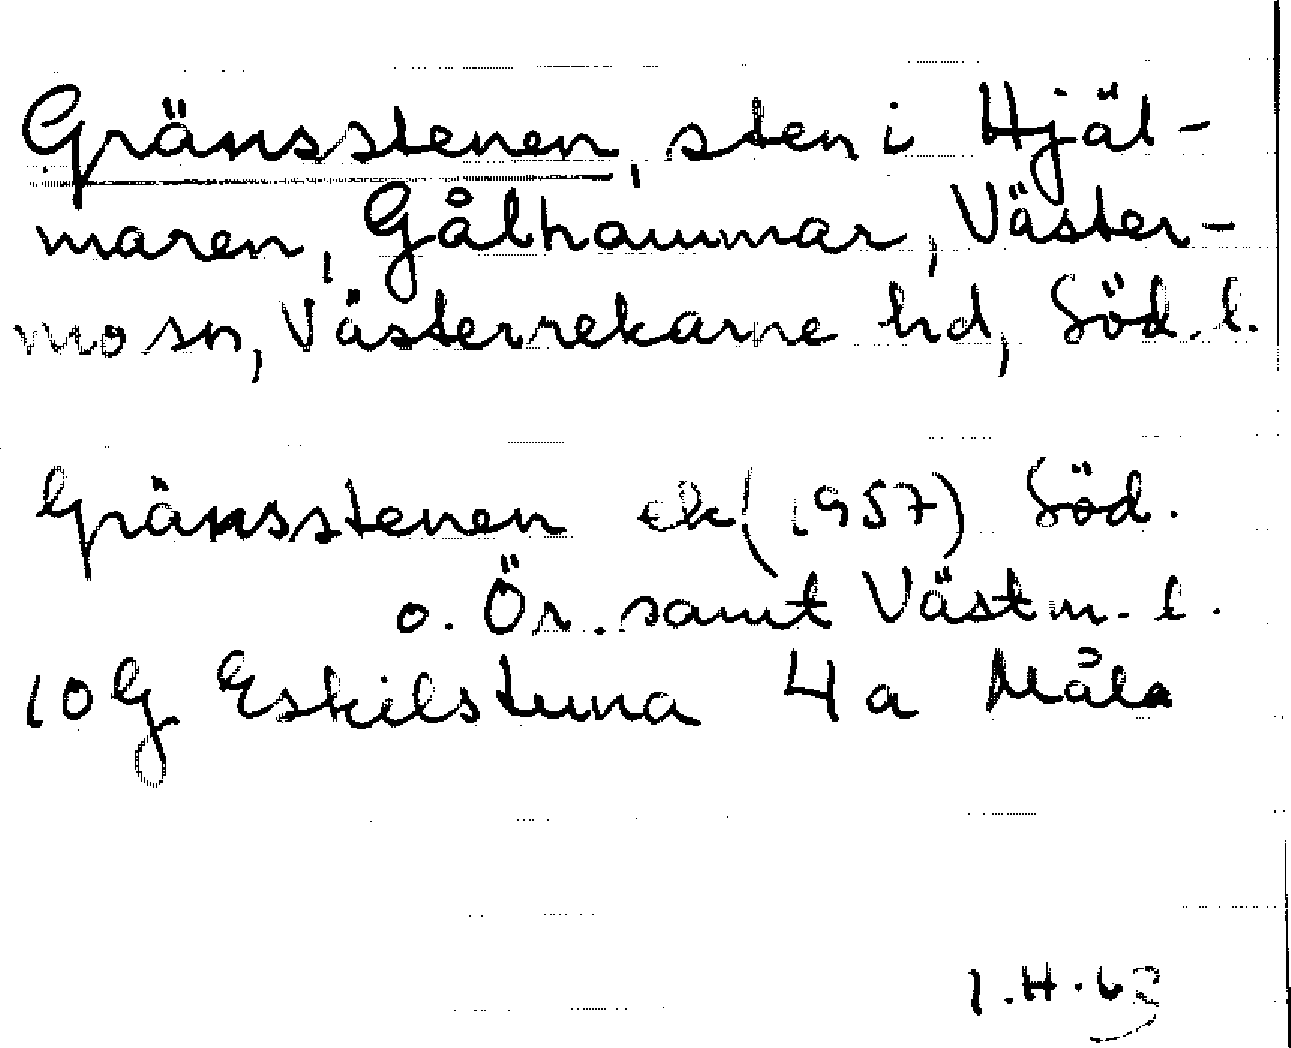 Gränsstenen, sten i Hjäl-
maren, Gålhammar, Väster-
mo sn, Västerrekarne hd, Söd. l.
Gränsstenen ek (1957) Söd.
o. Ör. samt Västm. l.
10G Eskilstuna 4a Måla
I.H. 63